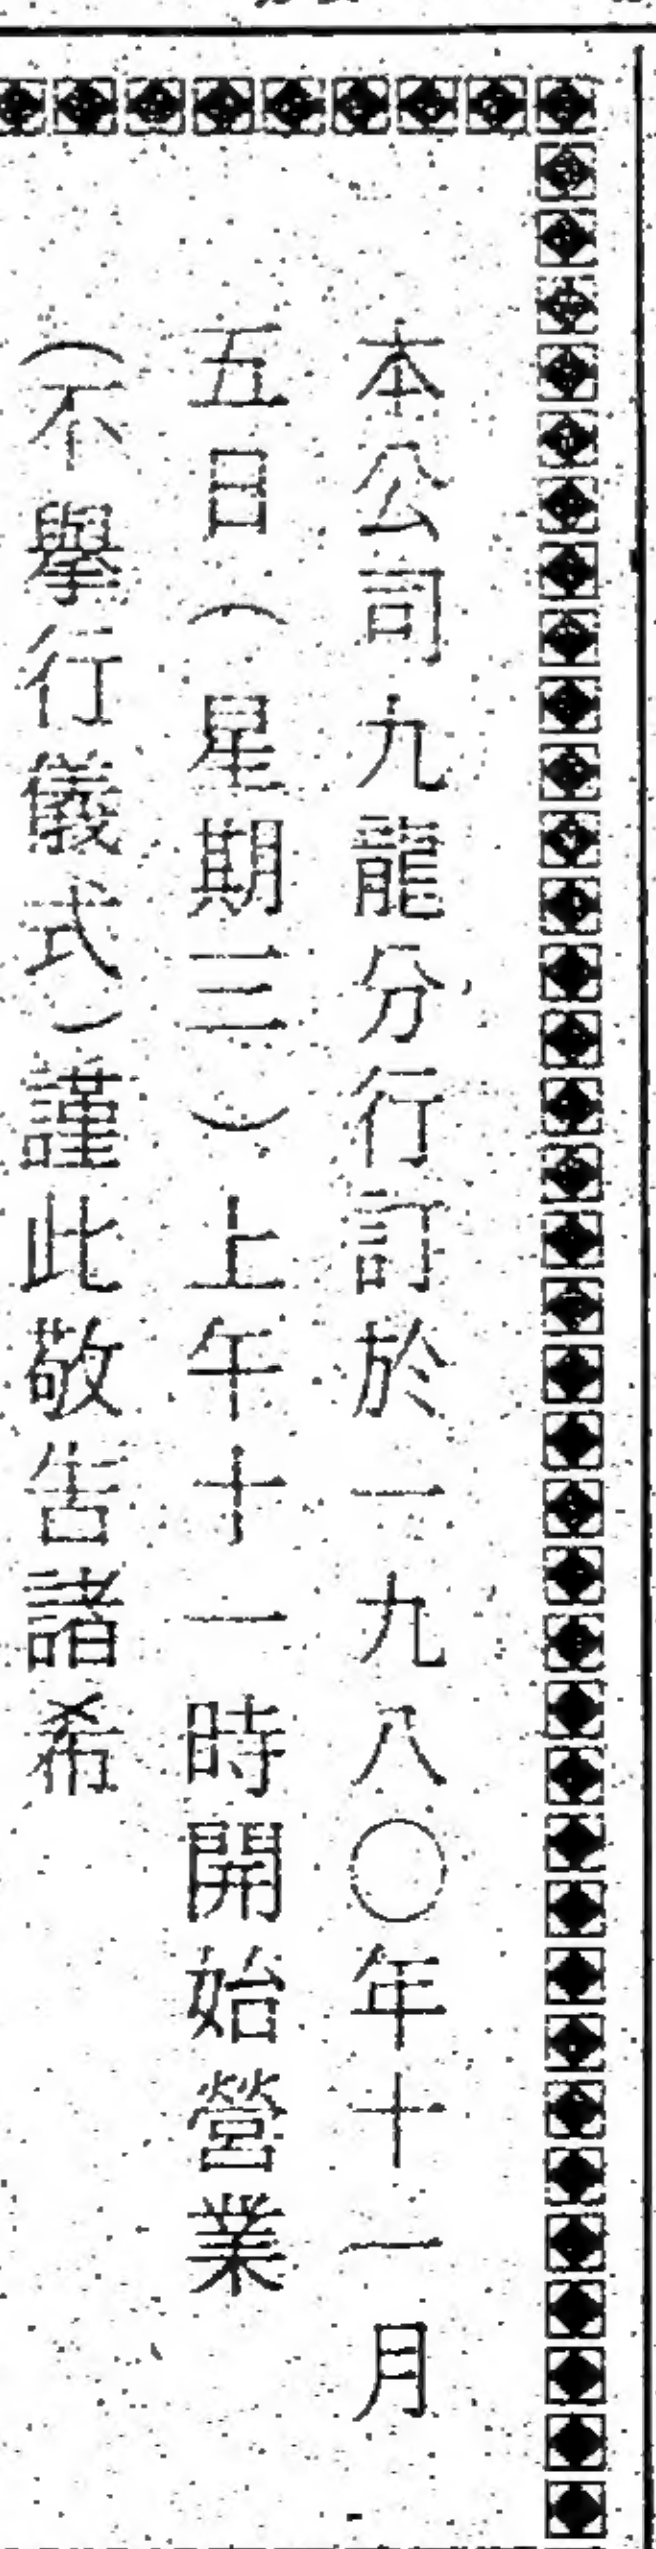 本公司九龍分行訂於一九八〇年十一月
五日(星期三)上午十一時開始營業
(不舉行儀式)謹此敬告諸希